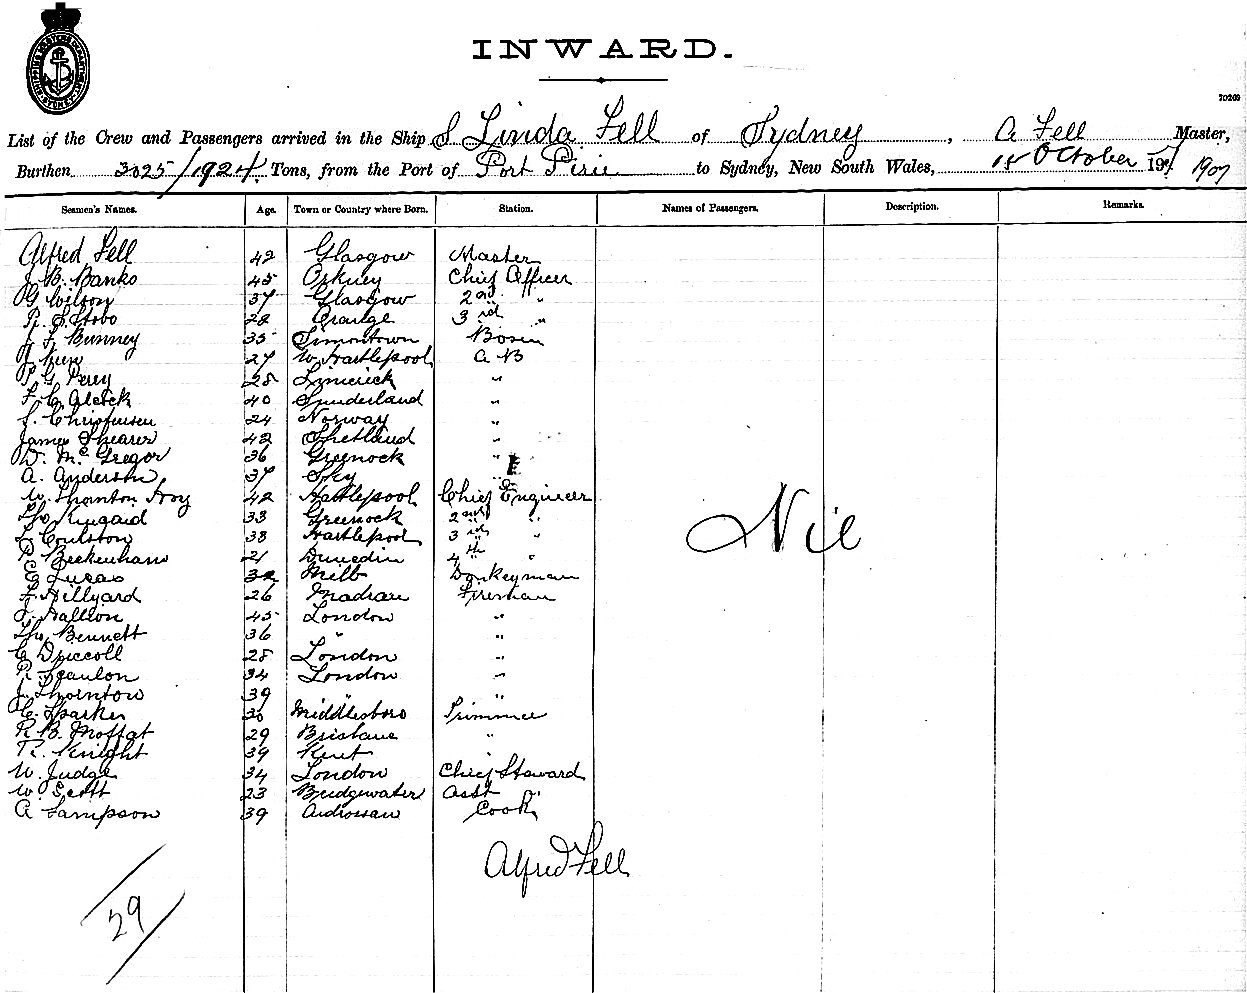 INWARD.
70209
List of the Crew and Passengers arrived in the Ship S Linda Fell of Sydney, A Fell Master,
Burthen 3025/1924 Tons, from the Port of Port Pirie to Sydney, New South Wales, 15 October 1907
Seamen's Names. Age. Town or Country where Born. Station. Names of Passengers. Description. Remarks.
Alfred Fell 42 Glasgow Master
J B. Banks 45 Orkney Chief Officer
G Wilson 37 Glasgow 2nd "
R. S. Stobo 28 Grange 3rd "
J. F. Bunney 35 Simontown Bosun
27 W. Hartlepool A B
P G Percy 28 Limerick "
F. C. 40 Sunderland "
24 Norway "
James Shearer 42 Shetland "
D. Mc Gregor 36 Greenock "
A. Anderson 37 Sky "
W. Thornton 42 Hartlepool Chief Engineer
Thos Kingaid 33 Greenock 2nd "
Coulston 38 Hartlepool 3rd "
R Beckenham 21 Dunedin 4th "
E Lucas 32 Melb Donkeyman
F. Hillyard 26 Madras Fireman
45 London "
Thos Bennett 36 " "
C Driscoll 28 London "
R. Scanlon 34 London "
J. Thornton 39 " "
C. Sparkes 20 Middlesboro Trimmer
R. B. Moffat 29 Brisbane "
R. Knight 39 Kent
W. Judge 34 London Chief Steward
W. Scott 23 Bridgewater Asst "
A Sampson 39 Ardrossan Cook
Nil
Alfred Fell
29